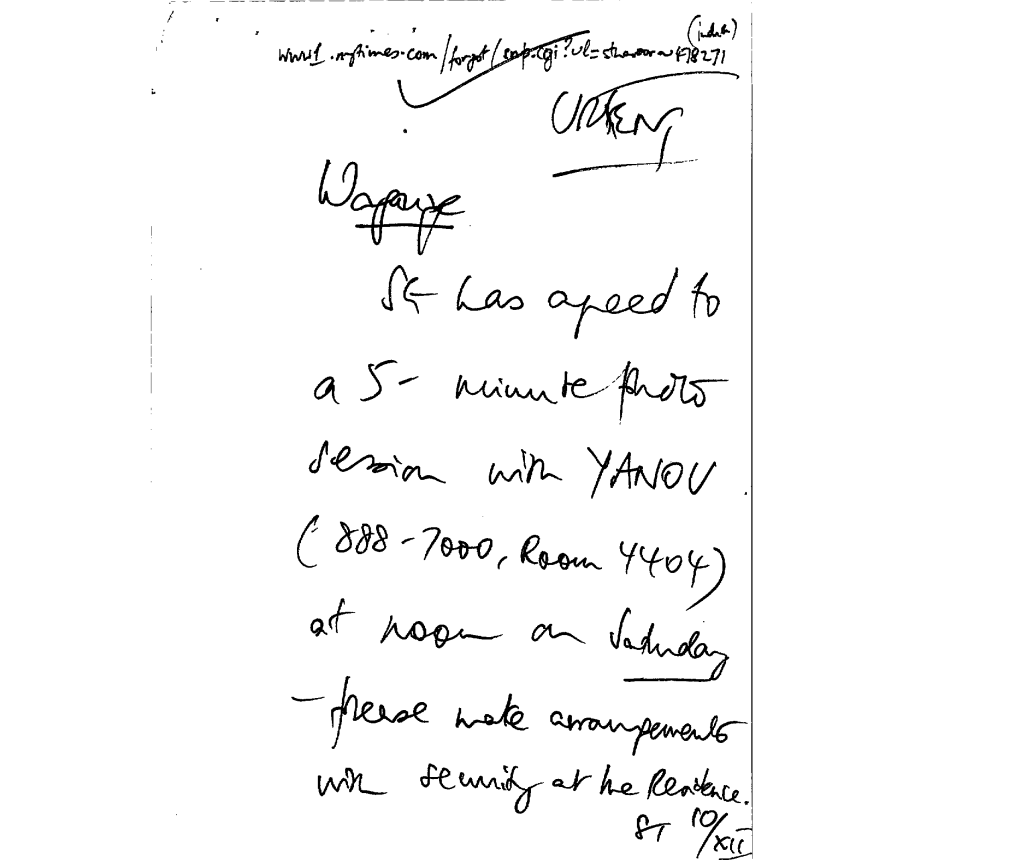 (india)
www1.nytimes.com/forgot/
URGENT
Wagaye
SG has agreed to
a 5-minute photo
session with YANOU
(888-7000, Room 4404)
at noon on Saturday
- please make arrangements
with security at the Residence.
ST 10/XII